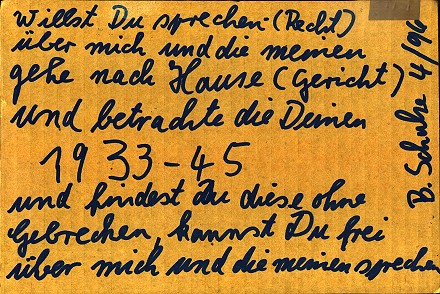 Willst Du sprechen (Recht)
über mich und die meinen
gehe nach Hause (Gericht)
und betrachte die Deinen
1933-45
und findest du diese ohne
Gebrechen, kannst Du frei
über mich und die meinen sprechen
B. Schuhe 4/96